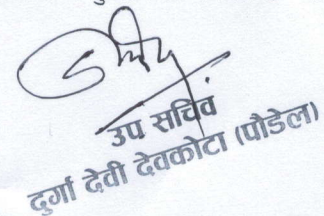 उप सचिव
दुर्गा देवी देवकोटा (पौडेल)